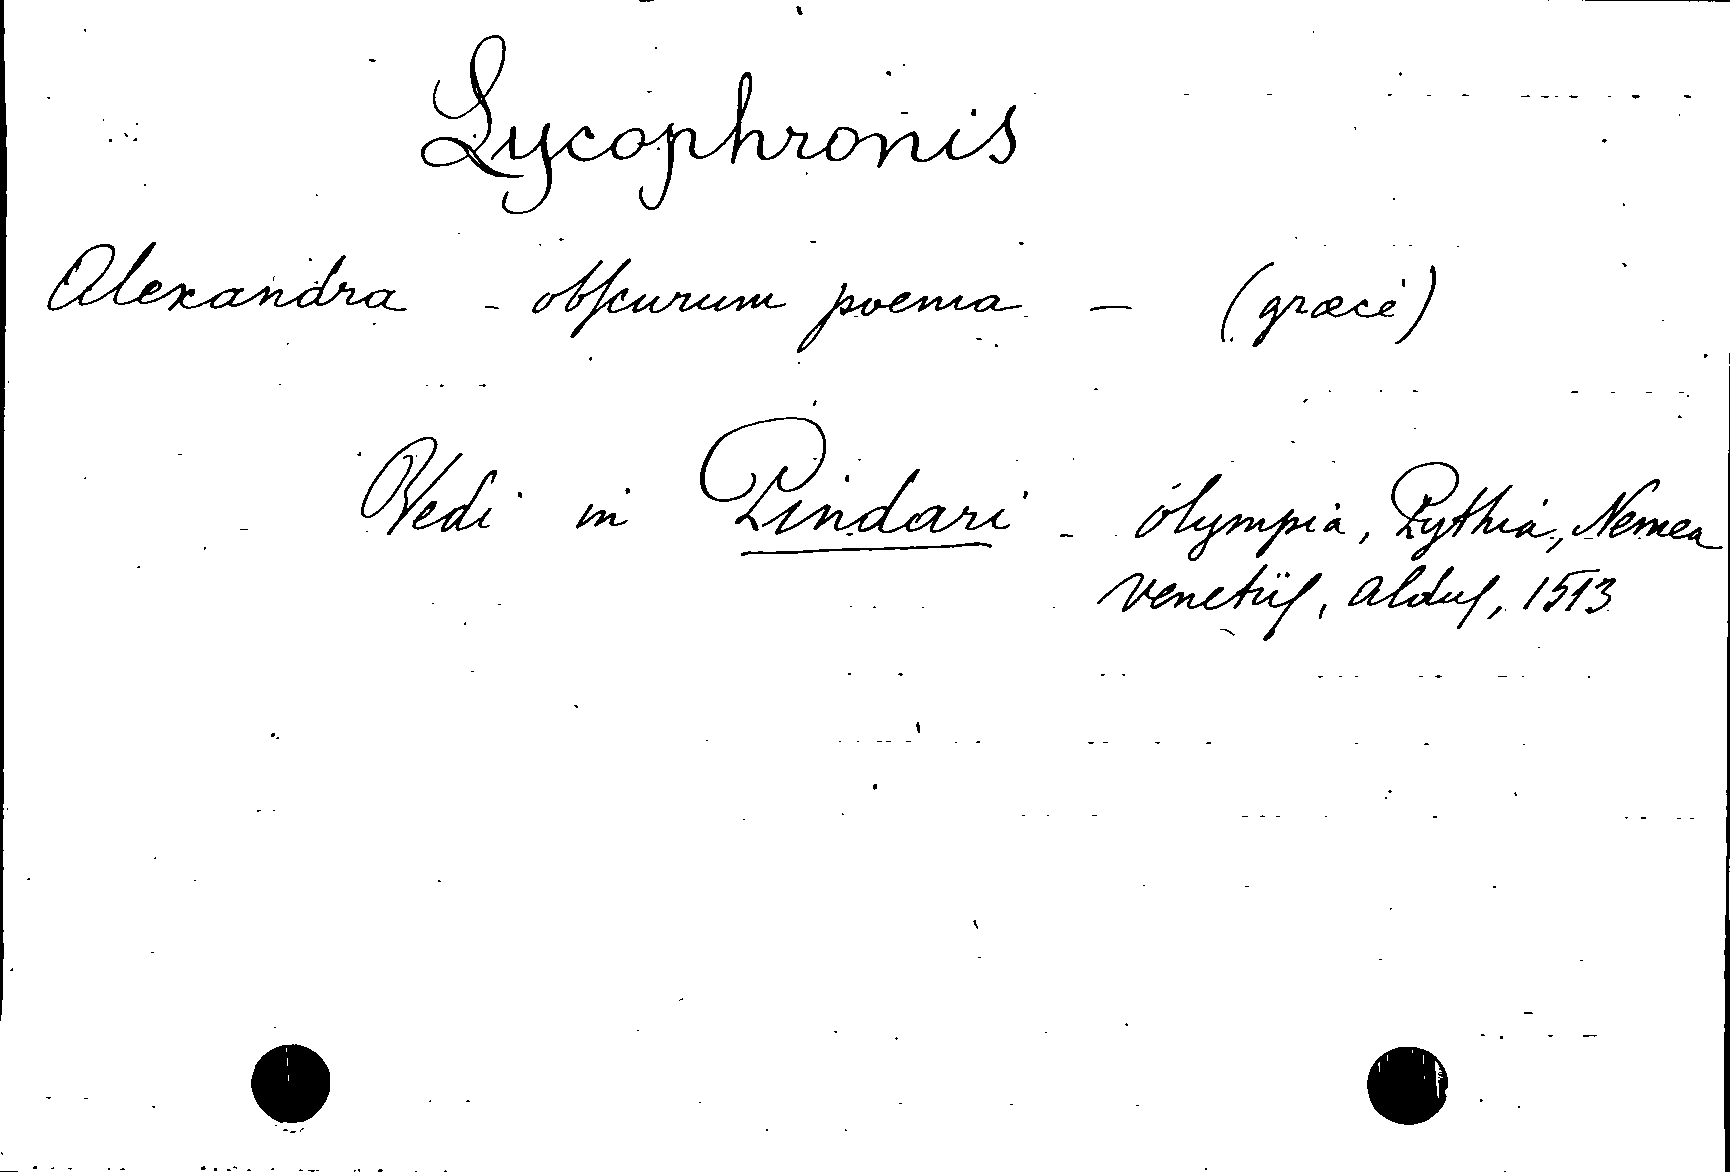 Lycophronis
Alexandra - obscurum poema - (græcè)
Vedi in Pindari - Olympia, Pythia, Nemea
Venetiis, Aldus, 1513